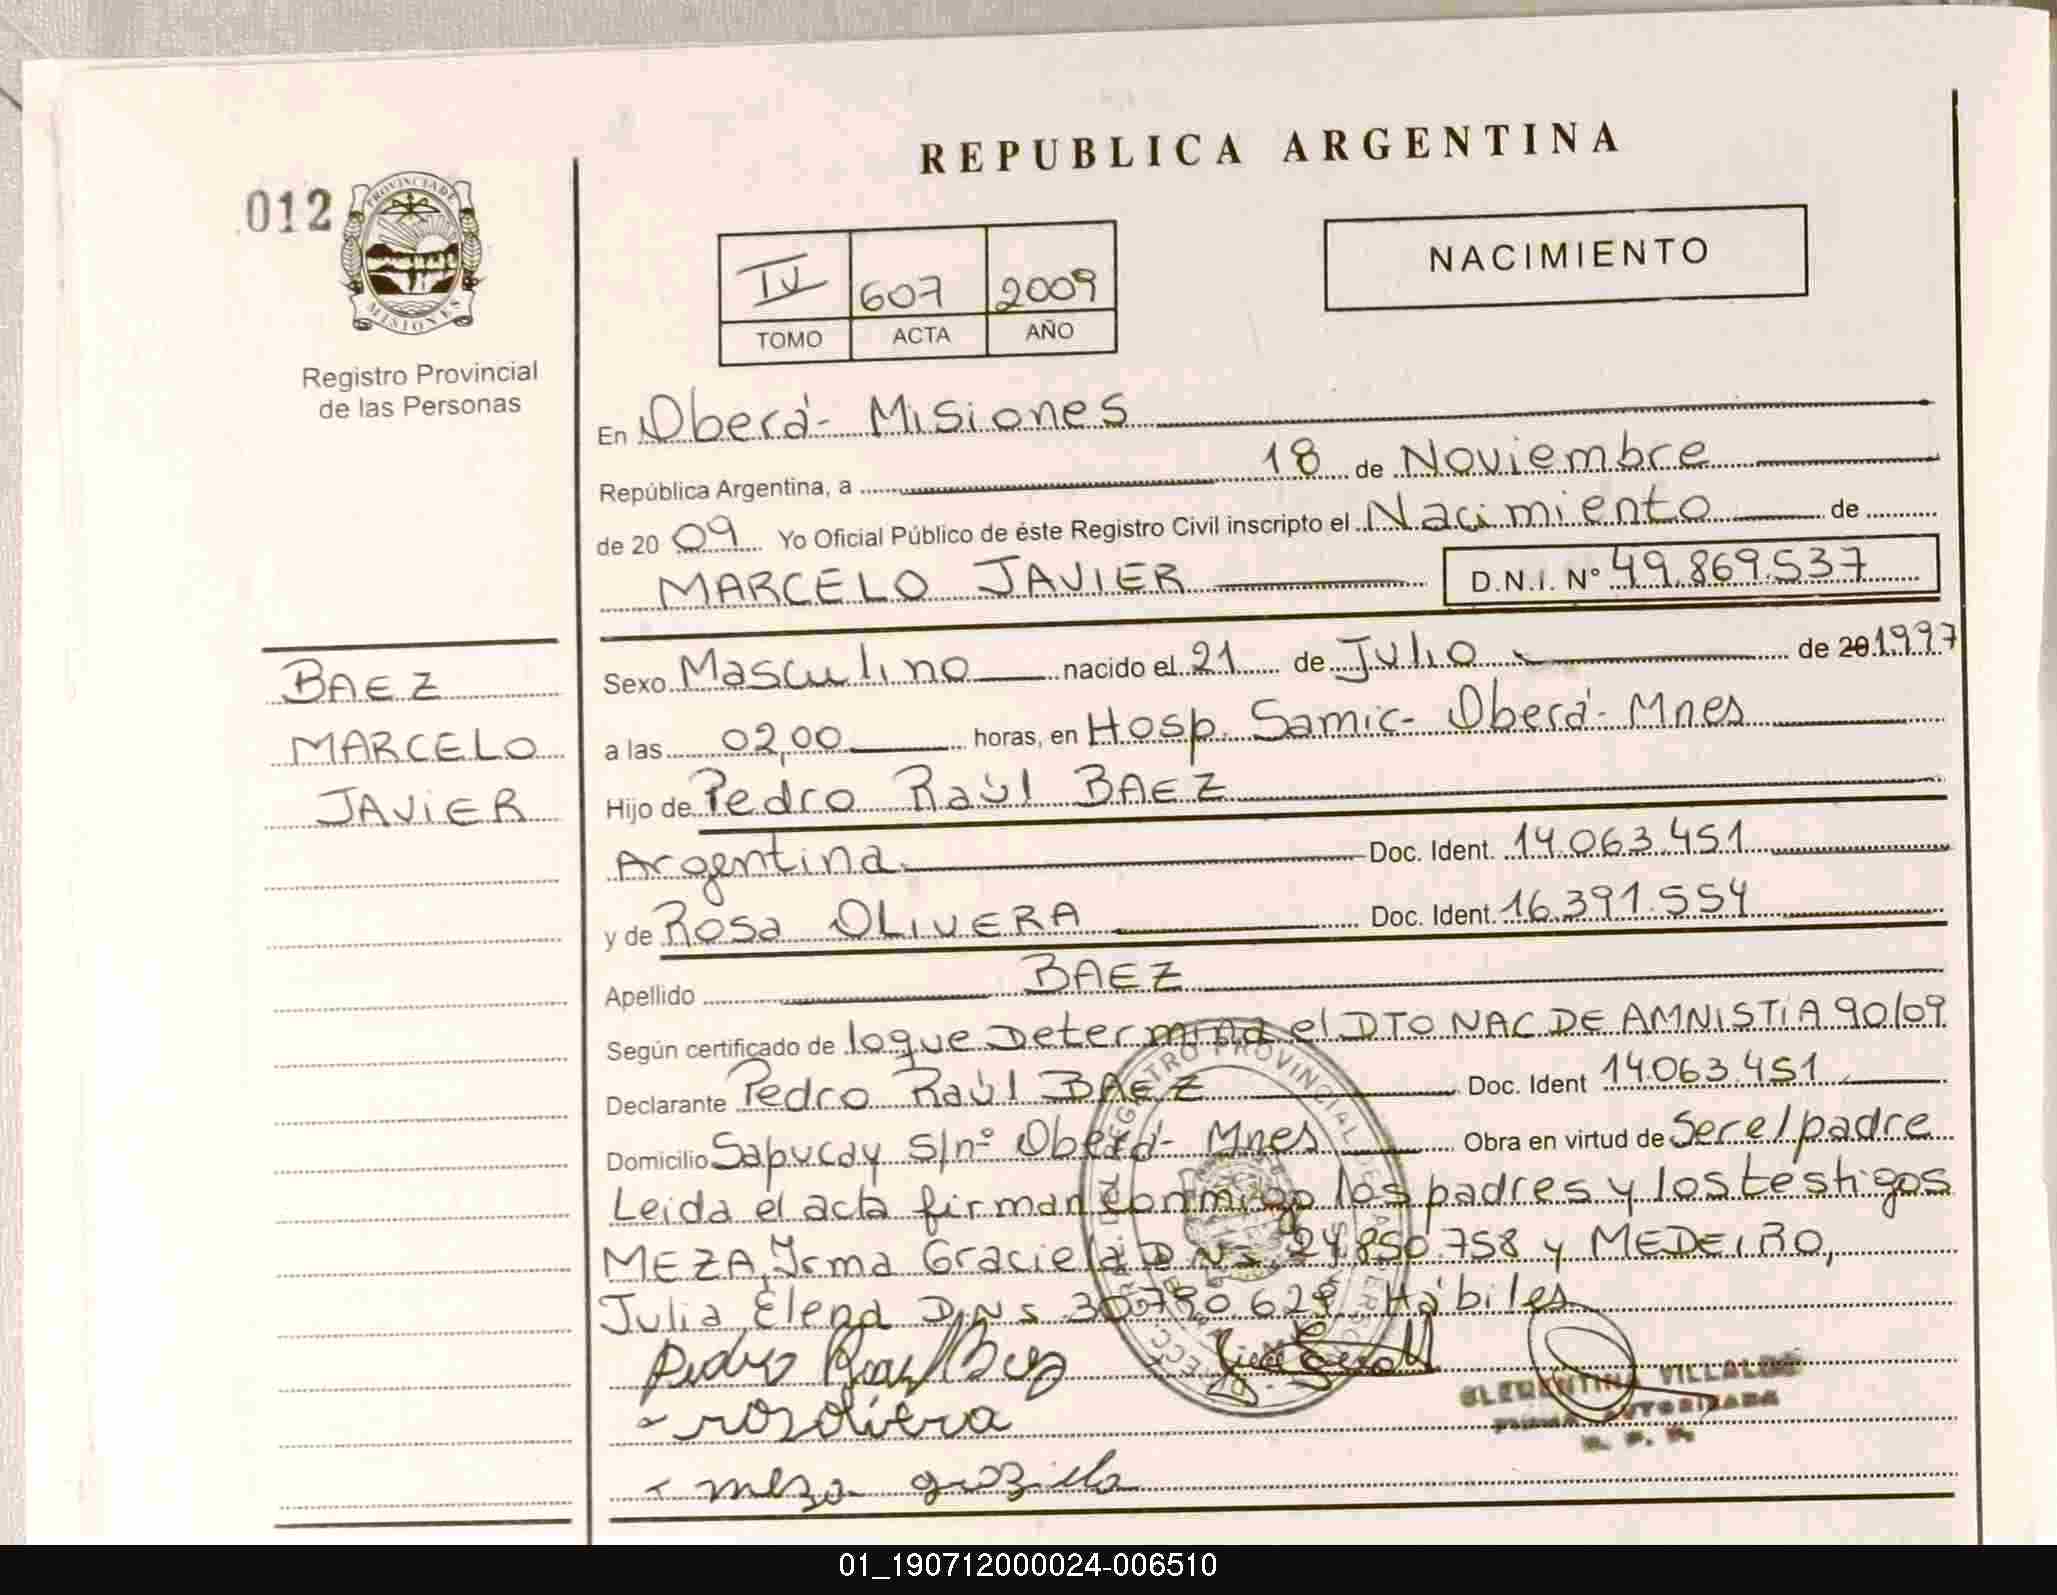 REPUBLICA ARGENTINA
012
PROVINCIA DE
MISIONES
Registro Provincial
de las Personas
NACIMIENTO
IV 607 2009
TOMO ACTA AÑO
En Oberá- Misiones
República Argentina, a 18 de Noviembre
de 2009 Yo Oficial Público de éste Registro Civil inscripto el Nacimiento de
MARCELO JAVIER D.N.I. Nº 49.869.537
BAEZ
MARCELO
JAVIER
Sexo Masculino nacido el 21 de Julio de 20 1997
a las 02,00 horas, en Hosp. Samic- Oberá- Mnes
Hijo de Pedro Raúl BAEZ
Argentina Doc. Ident. 14.063.451
y de Rosa OLIVERA Doc. Ident. 16.391.554
Apellido BAEZ
Según certificado de loque Determina el DTO NAC DE AMNISTIA 90/09
Declarante Pedro Raúl BAEZ Doc. Ident 14.063.451
Domicilio Sapucay S/nº Oberá- Mnes Obra en virtud de Ser el padre
Leida el acta firman conmigo los padres y los testigos
MEZA, Irma Graciela D.N.I. 24.850.758 y MEDEIRO,
Julia Elena D.N.I. Hábiles
Pedro Raul Baez
rosa olivera
meza graziela
CLEMENTINA VILLALBA
FIRMA AUTORIZADA
R. P. P.
REGISTRO PROVINCIAL DE
01_190712000024-006510